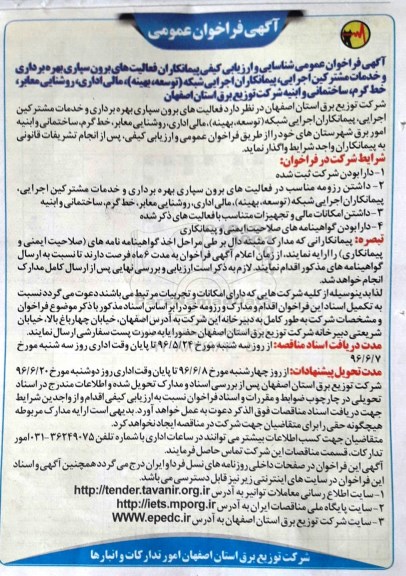 آگهی فراخوان عمومی
آگهی فراخوان عمومی شناسایی و ارزیابی کیفی پیمانکاران فعالیت های برون سپاری بهره برداری
و خدمات مشترکین اجرایی، پیمانکاران اجرایی شبکه (توسعه، بهینه)، مالی اداری، روشنایی معابر،
خط گرم، ساختمانی و ابنیه شرکت توزیع برق استان اصفهان
شرکت توزیع برق استان اصفهان در نظر دارد فعالیت های برون سپاری بهره برداری و خدمات مشترکین
اجرایی، پیمانکاران اجرایی شبکه (توسعه، بهینه)، مالی اداری، روشنایی معابر، خط گرم، ساختمانی و ابنیه
امور برق شهرستان های خود را از طریق فراخوان عمومی و ارزیابی کیفی، پس از انجام تشریفات قانونی
به پیمانکاران واجد شرایط واگذار نماید.
شرایط شرکت در فراخوان:
۱- دارا بودن شرکت ثبت شده
۲- داشتن رزومه مناسب در فعالیت های برون سپاری بهره برداری و خدمات مشترکین اجرایی،
پیمانکاران اجرایی شبکه (توسعه، بهینه)، مالی اداری، روشنایی معابر، خط گرم، ساختمانی و ابنیه
۳- داشتن امکانات مالی و تجهیزات متناسب با فعالیت های ذکر شده
۴- دارا بودن گواهینامه های صلاحیت ایمنی و پیمانکاری
تبصره: پیمانکارانی که مدارک مثبته دال بر طی مراحل اخذ گواهینامه نامه های (صلاحیت ایمنی و
پیمانکاری) را ارایه نمایند، از زمان اعلام آگهی فراخوان به مدت ۶ ماه فرصت دارند تا نسبت به ارسال
گواهینامه های مذکور اقدام نمایند. لازم به ذکر است ارزیابی و بررسی نهایی پس از ارسال کامل مدارک
انجام خواهد شد.
لذا بدینوسیله از کلیه شرکت هایی که دارای امکانات و تجربیات مرتبط می باشند دعوت می گردد نسبت
به تکمیل اسناد این فراخوان اقدام و مدارک و رزومه خود را بر اساس اسناد مذکور با ذکر موضوع فراخوان
و مشخصات شرکت به طور کامل به دبیرخانه این شرکت به آدرس اصفهان، خیابان چهارباغ بالا، خیابان
شریعتی دبیرخانه شرکت توزیع برق استان اصفهان حضورا یا به صورت پست سفارشی ارسال نمایند.
مدت دریافت اسناد مناقصه: از روز سه شنبه مورخ ۹۶/۵/۲۴ تا پایان وقت اداری روز سه شنبه مورخ
۹۶/۶/۷
مدت تحویل پیشنهادات: از روز چهارشنبه مورخ ۹۶/۶/۸ تا پایان وقت اداری روز دوشنبه مورخ ۹۶/۶/۲۰
شرکت توزیع برق استان اصفهان پس از بررسی اسناد و مدارک تحویل شده و اطلاعات مندرج در اسناد
تحویلی در چارچوب ضوابط و مقررات و اسناد فراخوان نسبت به ارزیابی کیفی اقدام و از واجدین شرایط
جهت دریافت اسناد مناقصات فوق الذکر دعوت به عمل خواهد آورد. بدیهی است ارایه مدارک مربوطه
هیچگونه حقی را برای متقاضیان جهت شرکت در مناقصه ایجاد نخواهد کرد.
متقاضیان جهت کسب اطلاعات بیشتر می توانند در ساعات اداری با شماره تلفن ۳۶۲۴۹۰۷۵-۰۳۱ امور
تدارکات، قسمت مناقصات این شرکت تماس حاصل فرمایند.
آگهی این فراخوان در صفحات داخلی روزنامه های نسل فردا و ایران درج می گردد همچنین آگهی و اسناد
این فراخوان در سایت های اینترنتی زیر نیز قابل دسترسی می باشد.
۱- سایت اطلاع رسانی معاملات توانیر به آدرس http://tender.tavanir.org.ir
۲- سایت پایگاه ملی مناقصات ایران به آدرس http://iets.mporg.ir
۳- سایت شرکت توزیع برق استان اصفهان به آدرس WWW.epedc.ir
شرکت توزیع برق استان اصفهان امور تدارکات و انبارها